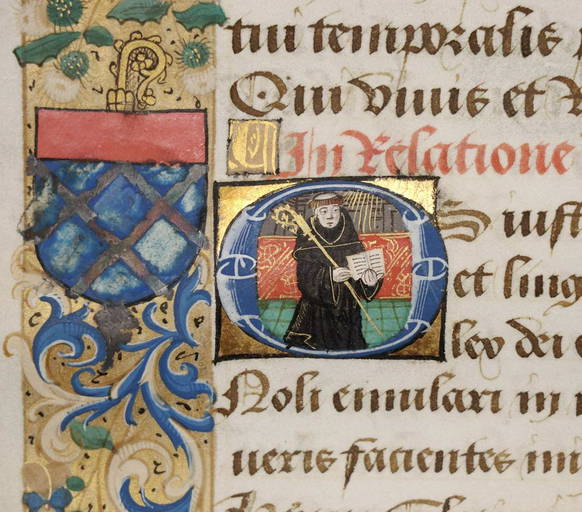 tui temporalis
Qui viuis et
In Relatione
Os iust
et ling
lex dei e
Noli emulari in
ueris facientes ini